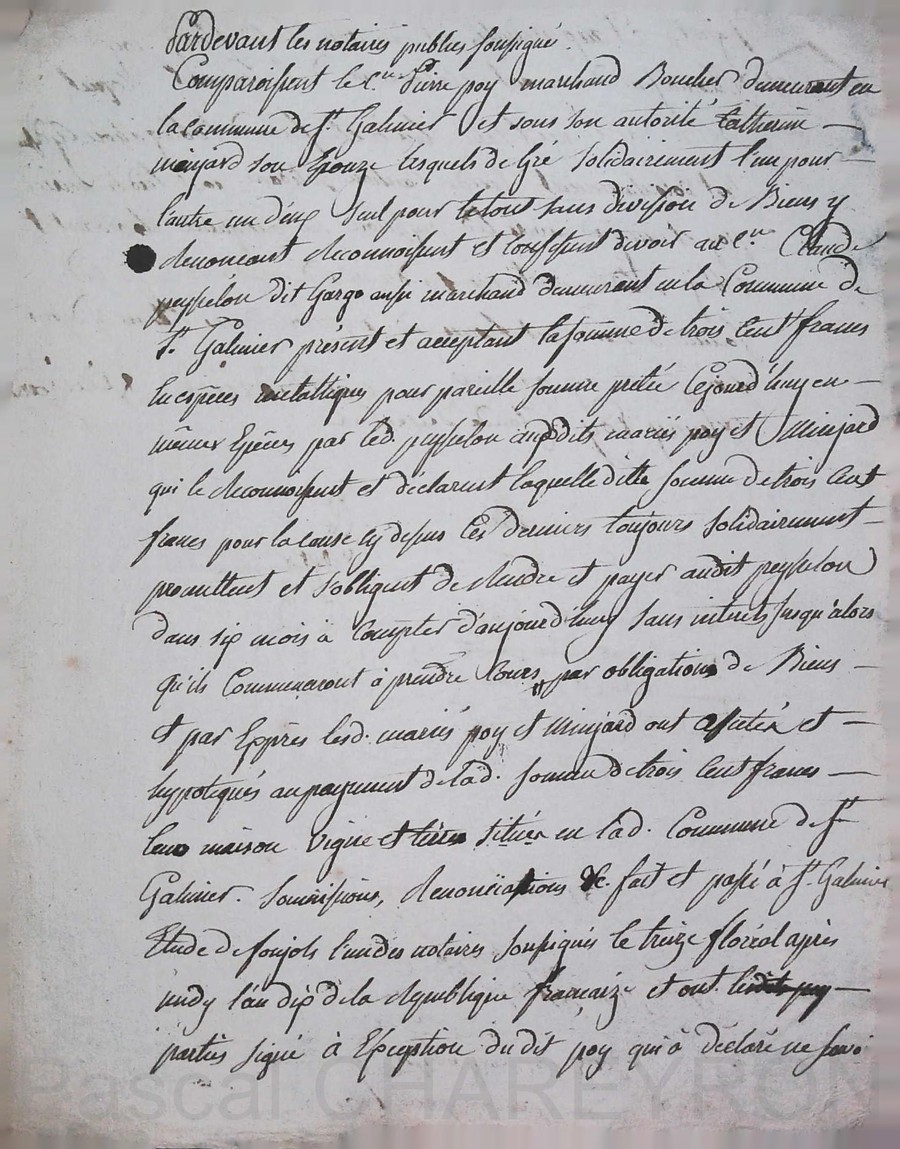 Pardevant les notaires publics soussigné.
Comparoissent le C.en Pierre poy marchand Boucher demeurant en
la commune de St. Galmier et sous son autorité Catherine
minjard son Epouze lesquels de Gré solidairement l'un pour
l'autre un d'eux seul pour le tout sans division de Biens y
Renoncant Reconnoissent et confessent devoir au C.en Claude
peysselon dit Gorgo aussi marchand demeurant en la Commune de
St. Galmier présent et acceptant la somme de trois Cent francs
En espèces métalliques pour pareille somme prétée Cejourd'huy en
mêmes Espèces par led. peysselon auxdits mariés poy et Minjard
qui le Reconnoissent et déclarent laquelle ditte somme de trois Cent
francs pour la cause cy dessus Ces derniers toujours Solidairement
promettent et s'obligent de Rendre et payer audit peysselon
dans six mois à Compter d'aujourd'huy sans interets Jusqu'alors
qu'ils Commenceront à prendre Cours, par obligations de Biens
et par Exprès lesd. mariés poy et Minjard ont affectés et
hypotequés au payement de lad. somme de trois Cent francs
leur maison vigne et terres situées en lad. Commune de St
Galmier. Soumissions, Renonciations &c. fait et passé à St. Galmier
Etude de l'un des notaires soussignés le treize floréal après
midy l'an dix de la République francaize et ont les
parties signé à Exception du dit poy qui à déclaré ne savoi
Pascal CHAREYRON